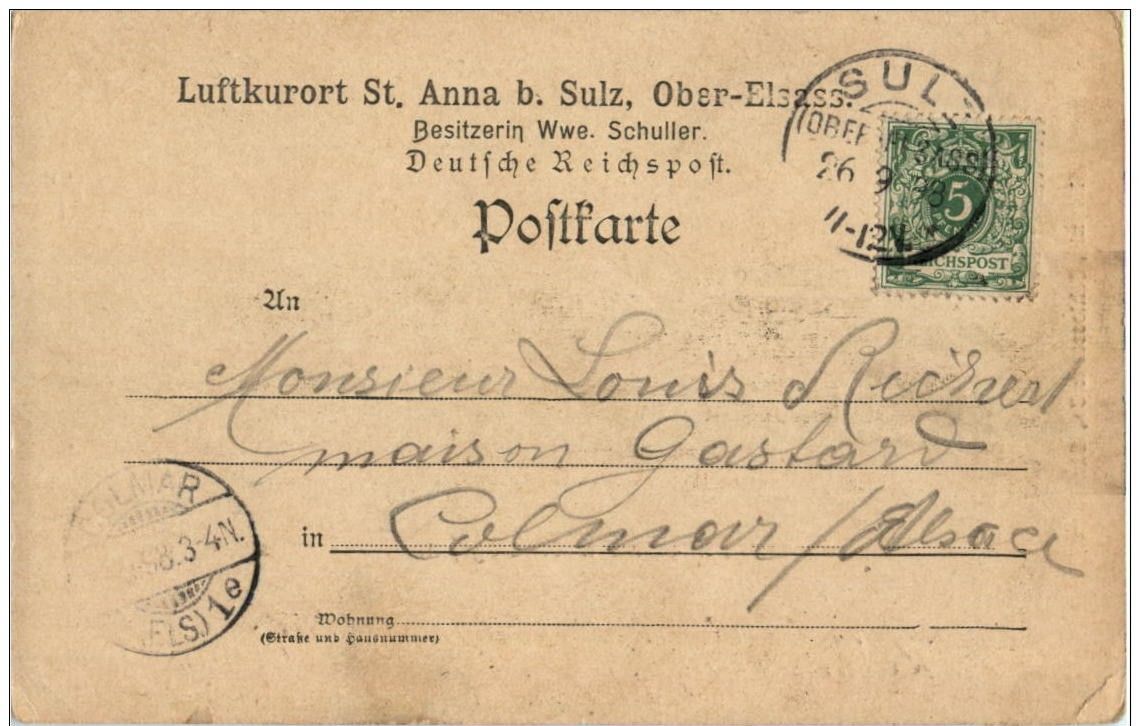 Luftkurort St. Anna b. Sulz, Ober-Elsass.
Besitzerin Wwe. Schuller.
Deutsche Reichspost.
Postkarte
SULZ
(OBER ELSASS)
26 9 98
11-12V.
5
REICHSPOST
An
Monsieur Louis Richert
maison Gastard
in Colmar / Alsace
COLMAR
.98.3-4N.
(ELS.) 1e
Wohnung
(Straße und Hausnummer)